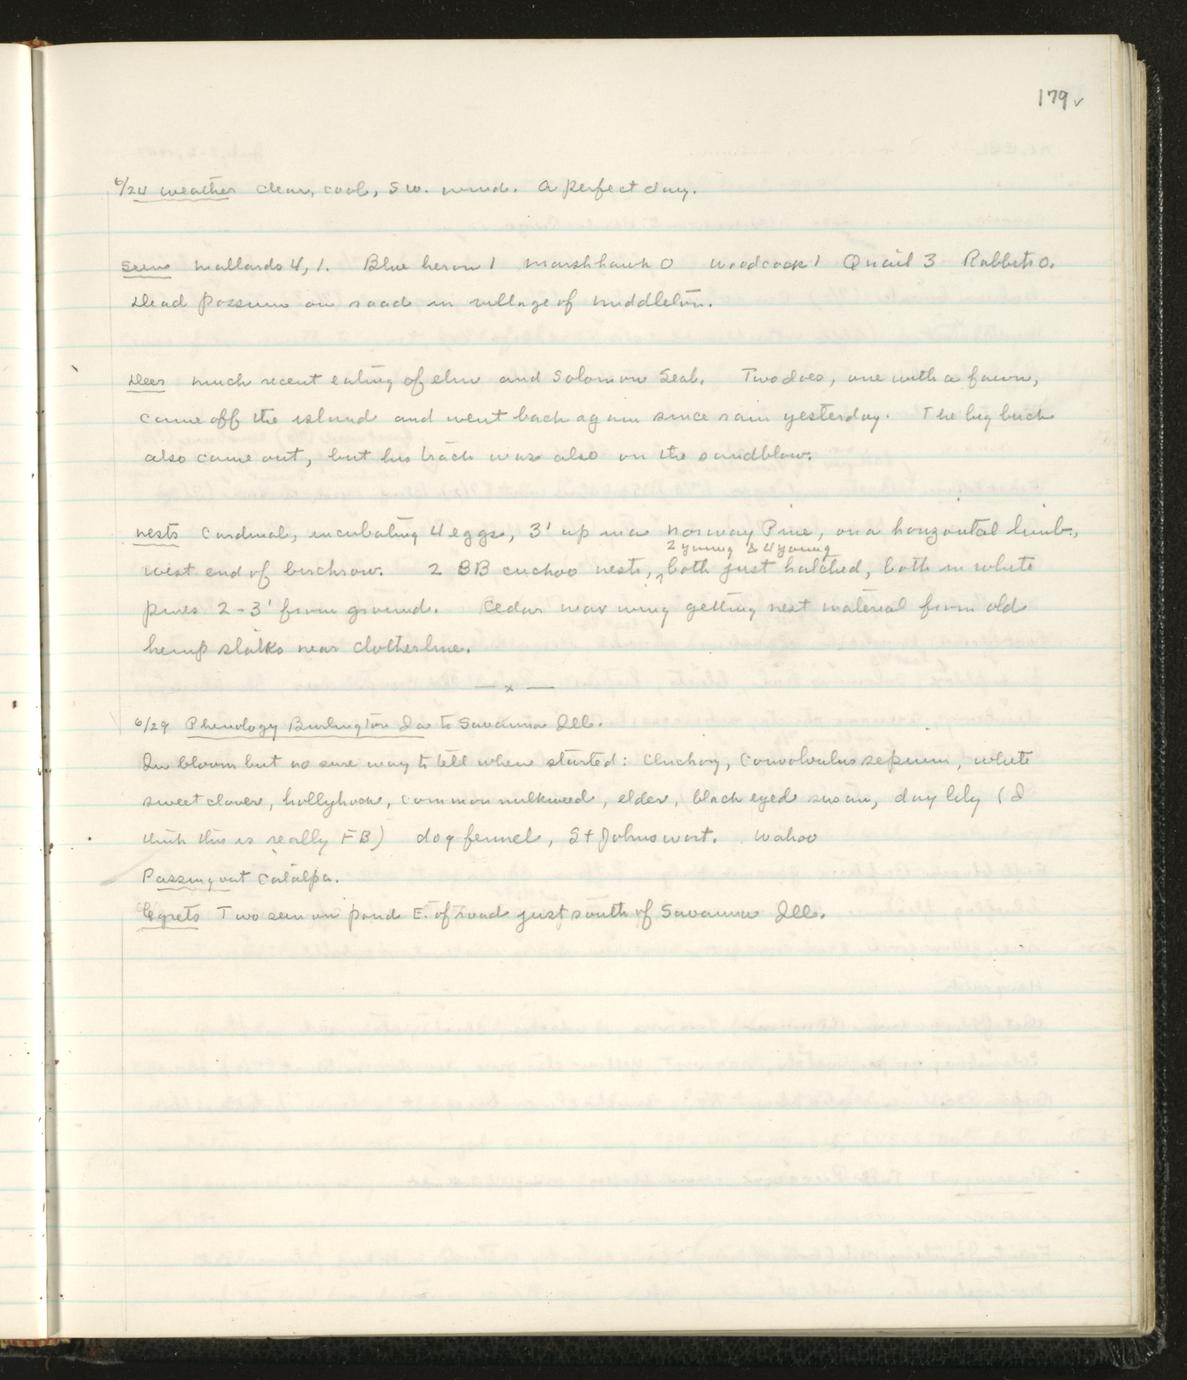 179 ✓
6/24 weather clear, cool, S.W. wind. A perfect day.
Seen Mallards 4, 1. Blue heron 1 Marshhawk 0 Woodcock 1 Quail 3 Rabbits 0.
Dead possum on road in village of Middleton.
Deer Much recent eating of elm and Solomon Seal. Two does, one with a fawn,
came off the island and went back again since rain yesterday. The big buck
also came out, but his track was also on the sandblow.
Nests Cardinal, incubating 4 eggs, 3' up in a Norway Pine, on a horizontal limb,
2 young & 4 young
west end of birchrow. 2 BB cuckoo nests, ‸both just hatched, both in white
pines 2-3' from ground. Cedar waxwing getting nest material from old
hemp stalks near clothesline.
— x —
6/29 Phenology Burlington Ia to Savanna Ill.
In bloom but no sure way to tell when started: Chickory, Convolvulus sepium, white
sweet clover, hollyhock, common milkweed, elder, black eyed susan, day lily (I
think this is really FB) dog fennel, St Johnswort. Wahoo
Passing out Catalpa.
Egrets Two seen on pond E. of road just south of Savanna Ill.